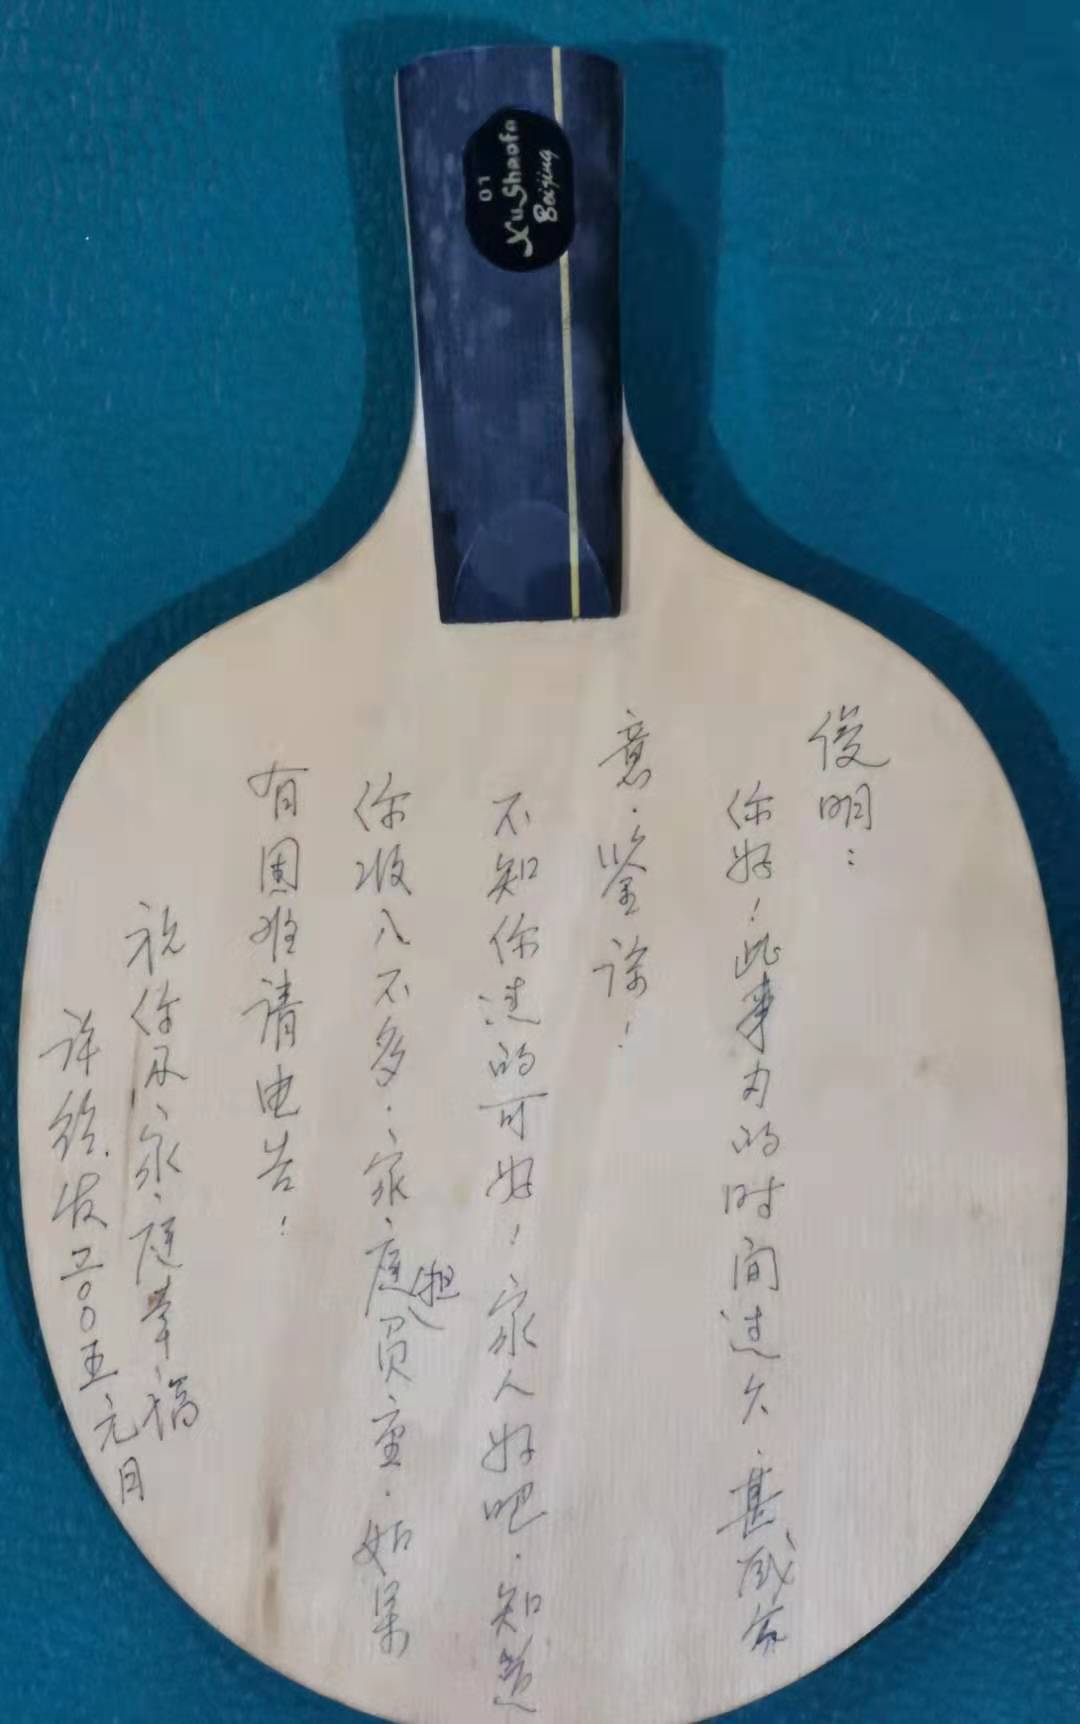 Xu Shaofa
Beijing
01
俊明：
你好！此事办的时间过久．甚感歉
意．鉴谅！
不知你过的可好！家人好吧．知道
你收入不多．家庭负担重．如果
有困难请电告！
祝你及家庭幸福
许绍发二〇〇五元月